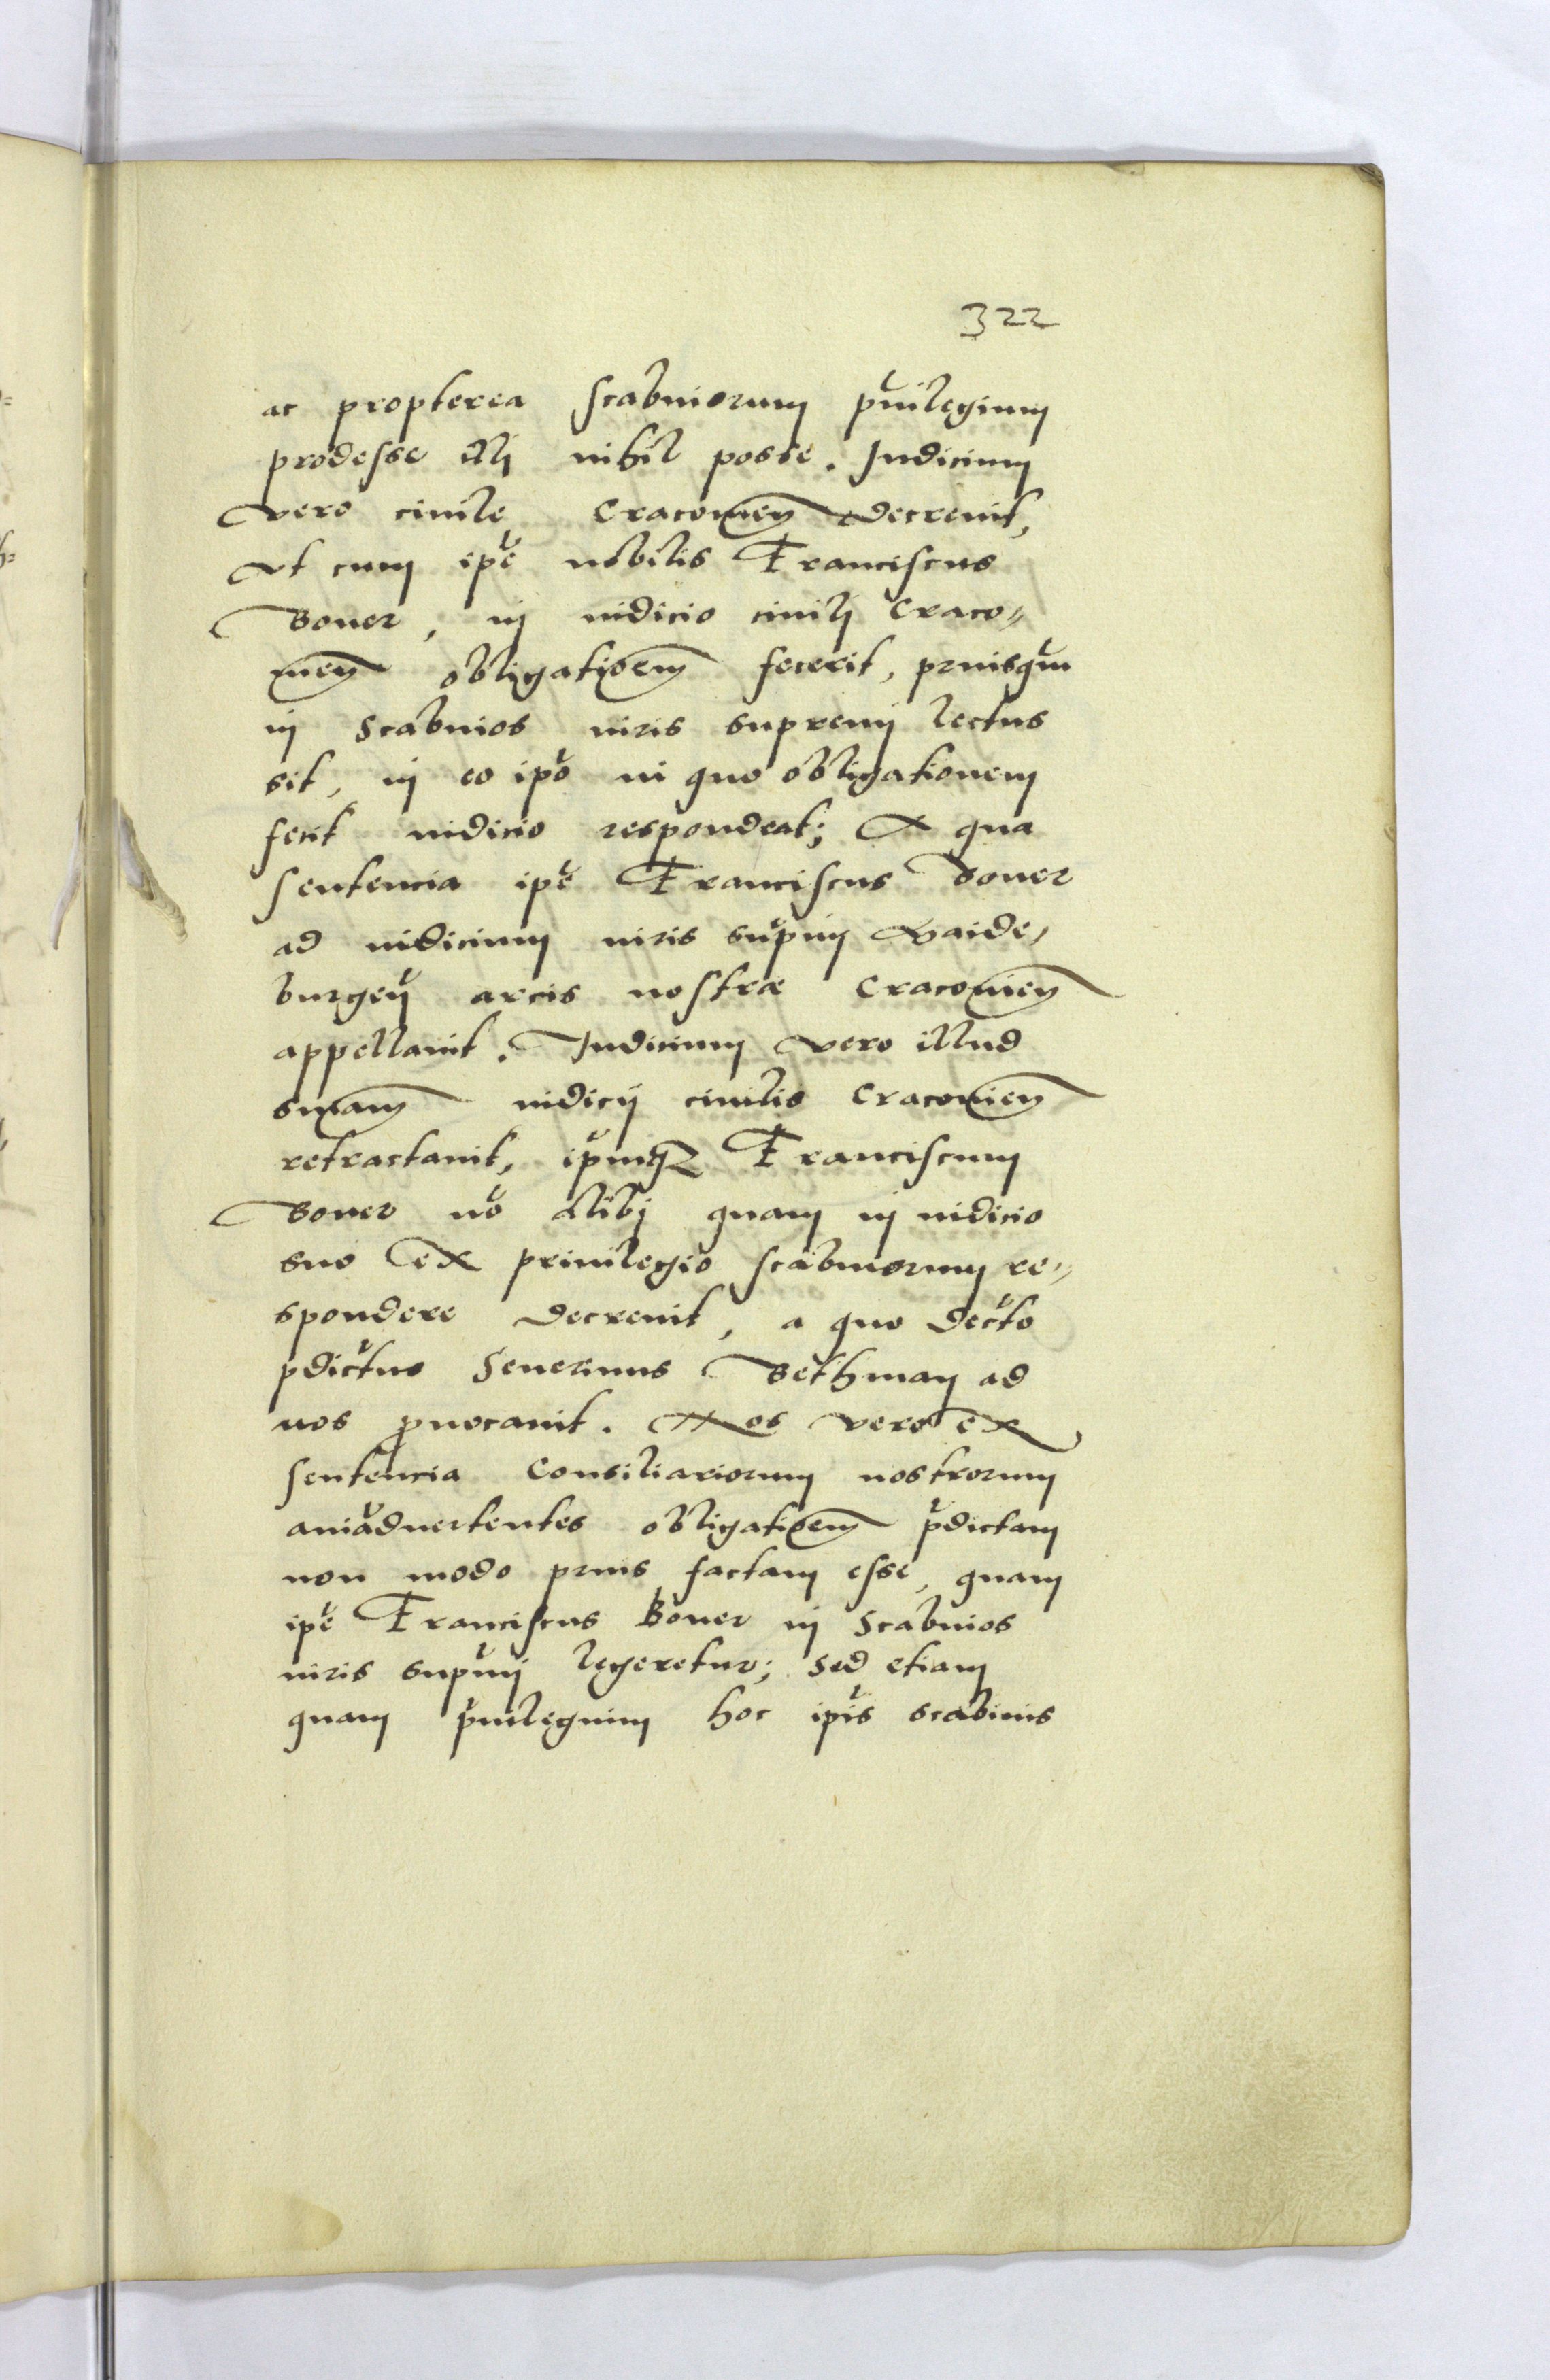 322
ac propterea scabinorum pͥuilegium
prodesse illi nihil posse. Judicium
vero ciuile Cracouień decreuit,
vt cum ipē nobilis Franciscus
Boner, in iudicio ciuili Craco-
uień obligatioēm fecerit, priusqͣm
in scabinos iuris supremi lectus
sit, in eo ipō in quo obligationem
fecit iudicio respondeat; A qua
sentencia ipē Franciscus Boner
ad iudicium iuris sup̄mi Maide-
burgeń arcis nostrae Cracouień
appellauit. Judicium vero illud
sniam iudicij ciuilis Cracouień
retractauit, ip̄mqꝫ Franciscum
Boner nō alibi quam in iudicio
suo ex priuilegio scabinorum re-
spondere decreuit, a quo decͬto
p̄dictus Seuerinus Bethman ad
nos ꝓuocauit. Nos vero ex
sentencia Consiliariorum nostrorum
aniāduertentes obligatioēm p̄dictam
non modo prius factam esse, quam
ipē Franciscus Boner in Scabinos
iuris sup̄mi legeretur; sed etiam
quam pͥuilegium hoc ip̄is scabinis